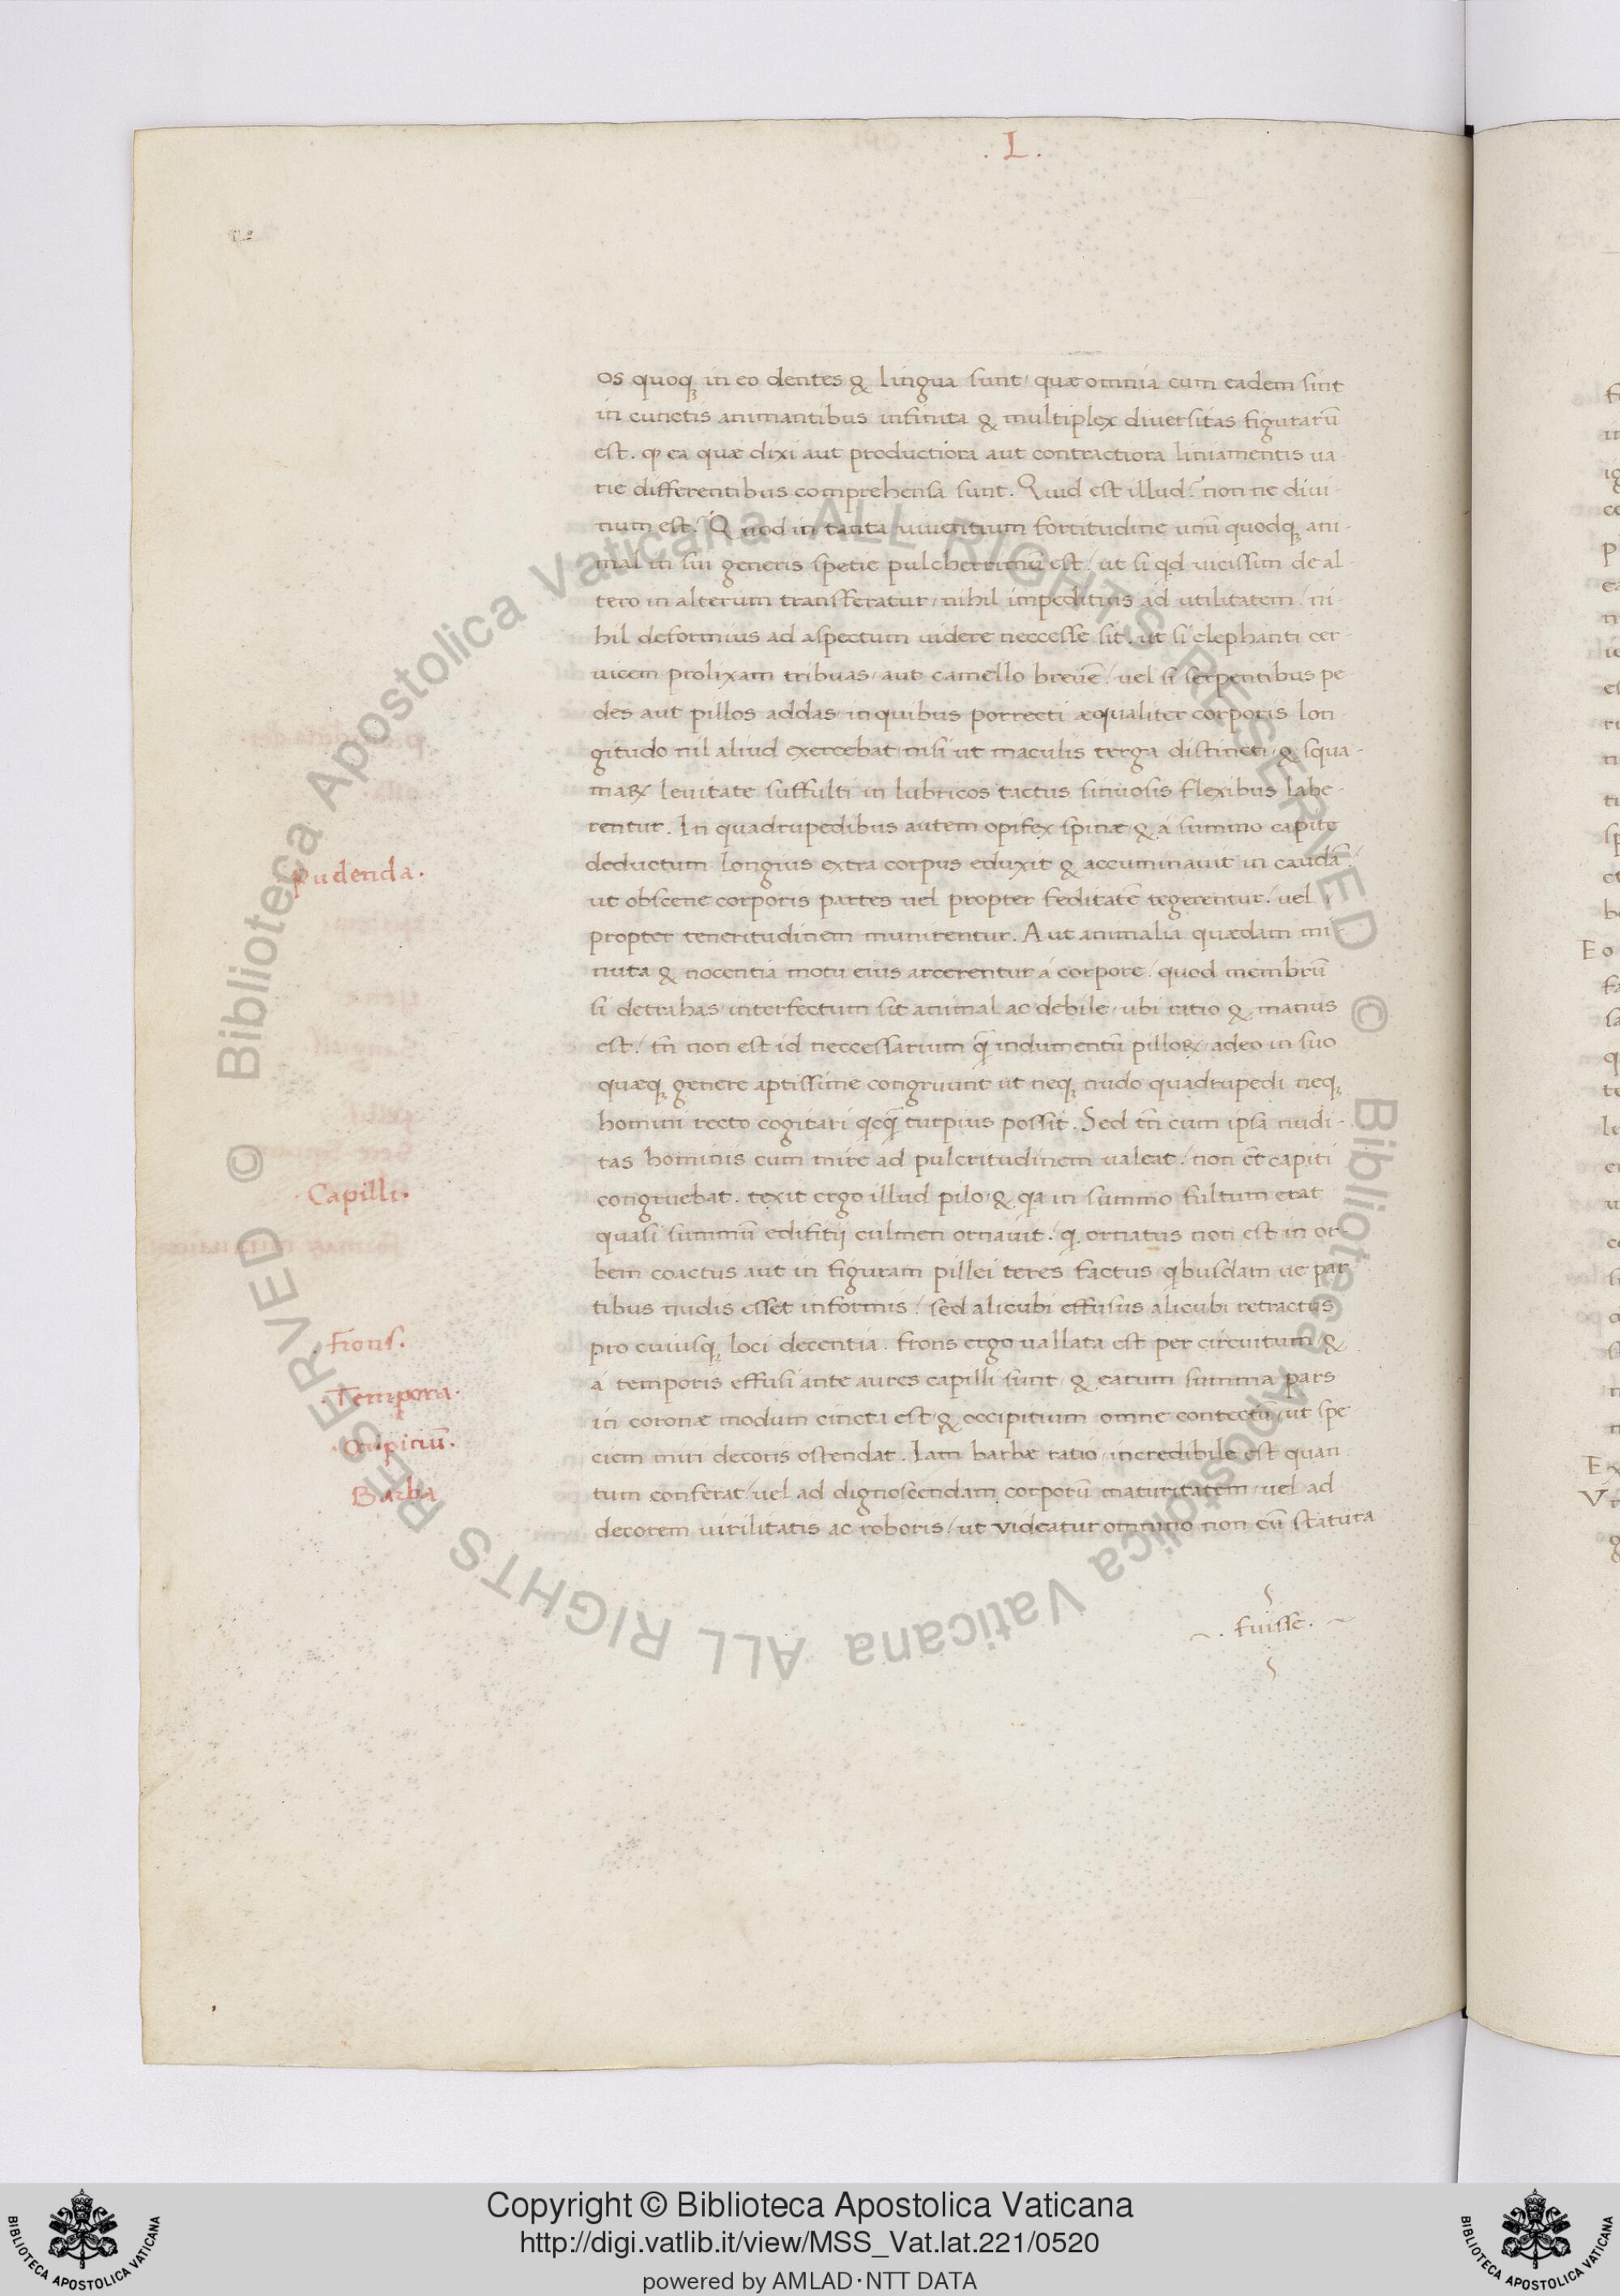 . L .
os quoq; in eo dentes & lingua sunt / quæ omnia cum eadem sint
in cunctis animantibus infinita & multiplex diuersitas figurarū
est. ꝙ ea quæ dixi aut productiora aut contractiora liniamentis ua-
rie differentibus comprehensa sunt. Quid est illud? non ne diui-
num est? Quod in tanta uiuentium fortitudine unū quodq; ani-
mal in sui generis spetie pulcherrimū est / ut si qd uicissim de al-
tero in alterum transferatur / nihil impeditius ad utilitatem / ni-
hil deformius ad aspectum uidere neccesse sit. ut si elephanti cer-
uicem prolixam tribuas / aut camello breuē / uel si serpentibus pe
des aut pillos addas / in quibus porrecti æqualiter corporis lon-
gitudo nil aliud exercebat / nisi ut maculis terga distincti / & squa-
maꝝ leuitate suffulti in lubricos tactus sinuosis flexibus labe-
rentur. In quadrupedibus autem opifex spinæ & a summo capite
deductum longius extra corpus eduxit & accuminauit in caudā /
ut obscene corporis partes uel propter feditatē tegerentur / uel
propter teneritudinem munirentur. Aut animalia quædam mi-
nuta & nocentia motu eius arcerentur á corpore / quod membrū
si detrahas / interfectum sit animal ac debile / ubi ratio & manus
est / tn̄ non est id neccessarium q̄ indumentū pilloꝝ / adeo in suo
quæq; genere aptissime congruunt ut neq; nudo quadrupedi neq;
homini recto cogitari qcq̄ turpius possit. Sed tn̄ cum ipsa nudi-
tas hominis cum mire ad pulcritudinem ualeat / non ēt capiti
congruebat. texit ergo illud pilo & qa in summo fultum erat
quasi summū edifitij culmen ornauit. q ornatus non est in or
bem coactus aut in figuram pillei teres factus / qbusdam ue par
tibus nudis esset informis / sed alicubi effusus alicubi retractus
pro cuiusq; loci decentia. frons ergo uallata est per circuitum / &
á temporis effusi ante aures capilli sunt / & earum summa pars
in coronæ modum cincta est & occipitium omne contectū / ut spe
ciem miri decoris ostendat. Iam barbæ ratio incredibile est quan
tum conferat / uel ad dignoscendam corporū maturitatem / uel ad
decorem uirilitatis ac roboris / ut videatur omnino non cū statura
~. fuisse. ~
Pudenda.
Capilli.
.frons.
.Tempora.
.Occipiciū.
Barba
Copyright © Biblioteca Apostolica Vaticana
http://digi.vatlib.it/view/MSS_Vat.lat.221/0520
powered by AMLAD·NTT DATA
BIBLIOTECA APOSTOLICA VATICANA
BIBLIOTECA APOSTOLICA VATICANA
© Biblioteca Apostolica Vaticana ALL RIGHTS RESERVED © Biblioteca Apostolica Vaticana ALL RIGHTS RESERVED